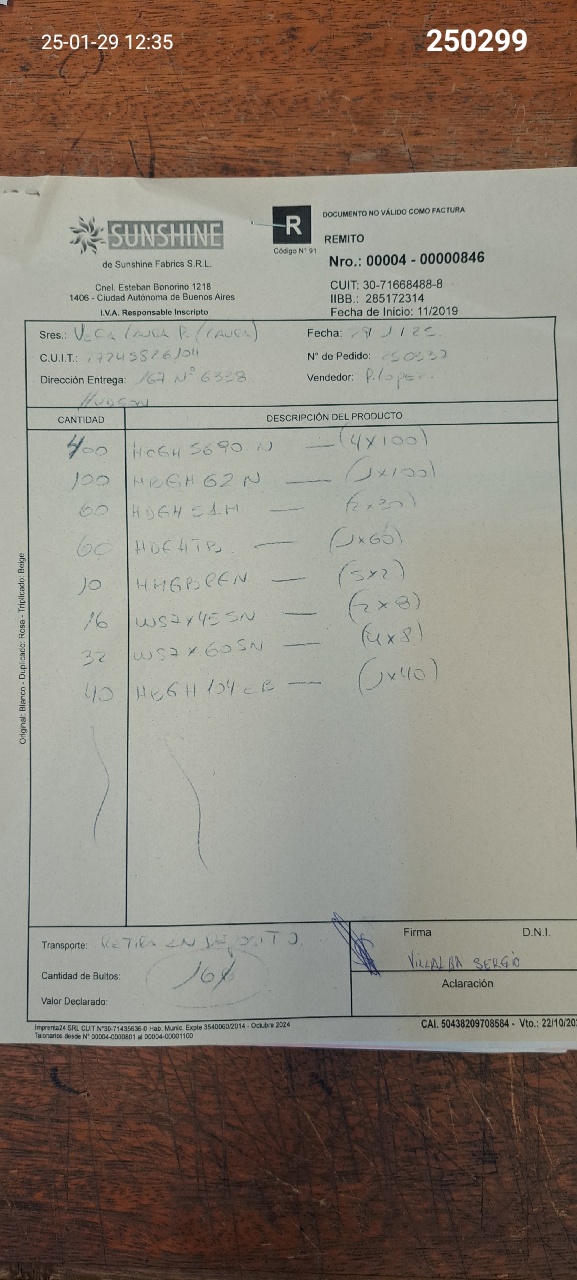 25-01-29 12:35
250299
SUNSHINE
de Sunshine Fabrics S.R.L.
Cnel. Esteban Bonorino 1218
1406 - Ciudad Autónoma de Buenos Aires
I.V.A. Responsable Inscripto
R
Código N° 91
DOCUMENTO NO VÁLIDO COMO FACTURA
REMITO
Nro.: 00004 - 00000846
CUIT: 30-71668488-8
IIBB.: 285172314
Fecha de Inicio: 11/2019
Sres.: VEGA LAURA P. (LAURA)
Fecha: 29/1/25
C.U.I.T.:
N° de Pedido:
Dirección Entrega: 167 N° 6338
Vendedor: P. Lopez
HUDSON
CANTIDAD DESCRIPCIÓN DEL PRODUCTO
400 5690 N — (4x100)
100 62 N — (1x100)
60 51 — (2x30)
60 — (1x60)
10 — (5x2)
16 WS7x45SN — (2x8)
32 WS7x60SN — (4x8)
40 — (1x40)
Original: Blanco - Duplicado: Rosa - Triplicado: Beige
Transporte: RETIRA EN DEPOSITO.
Cantidad de Bultos:
Valor Declarado:
Firma D.N.I.
VILLALBA SERGIO
Aclaración
Imprenta24 SRL CUIT N°30-71435636-0 Hab. Munic. Expte 3540060/2014 - Octubre 2024
Talonarios desde N° 00004-0000801 al 00004-00001100
CAI. 50438209708584 - Vto.: 22/10/20